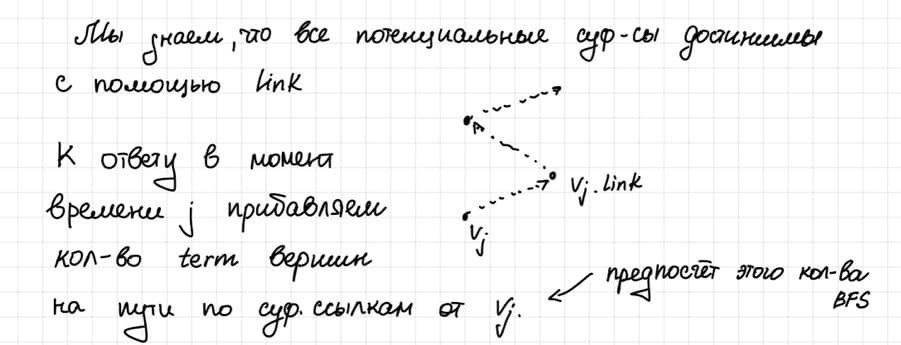 Мы знаем, что все потенциальные суф-сы достижимы
с помощью link
К ответу в момент
времени j прибавляем
кол-во term вершин
на пути по суф. ссылкам от Vj.
Vj.link
Vj
предпосчёт этого кол-ва
BFS